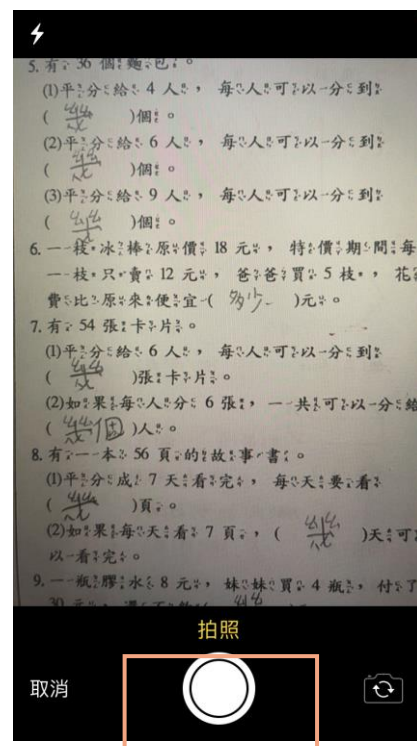 5.有 36 個麵包。
(1)平分給 4 人,每人可以分到
( 幾 )個。
(2)平分給 6 人,每人可以分到
( 幾 )個。
(3)平分給 9 人,每人可以分到
( 幾 )個。
6.一枝冰棒原價 18 元,特價期間每
一枝只賣 12 元,爸爸買 5 枝,花
費比原來便宜( 多少 )元。
7.有 54 張卡片。
(1)平分給 6 人,每人可以分到
( 幾 )張卡片。
(2)如果每人分 6 張,一共可以分給
( 幾個 )人。
8.有一本 56 頁的故事書。
(1)平分成 7 天看完,每天要看
( 幾 )頁。
(2)如果每天看 7 頁,( 幾 )天可
以看完。
9.一瓶膠水 8 元,妹妹買 4 瓶,付了
30 元
拍照
取消